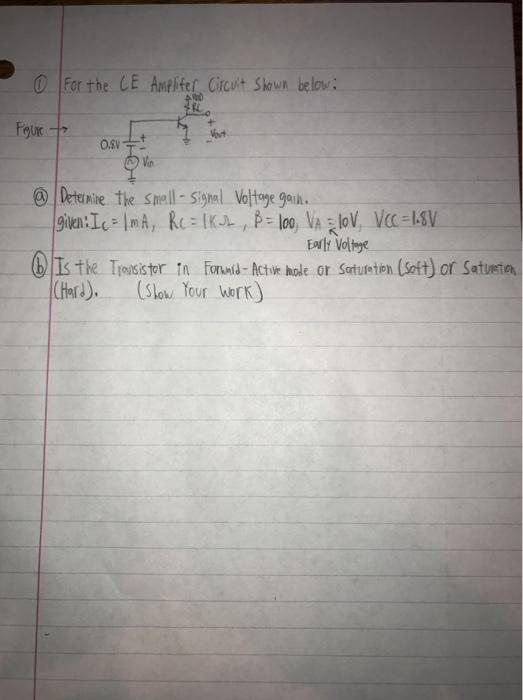 ① For the CE Amplifer Circuit Shown below:
VDD
RC
Figure →
+
Vout
-
0.8V
+
-
Vin
ⓐ Determine the small-signal Voltage gain.
given: Ic = 1mA, Rc = 1KΩ, β = 100, VA = 10V, VCC = 1.8V
Early Voltage
ⓑ Is the Transistor in Forward-Active mode or Saturation (Soft) or Saturation
(Hard). (Show Your Work)